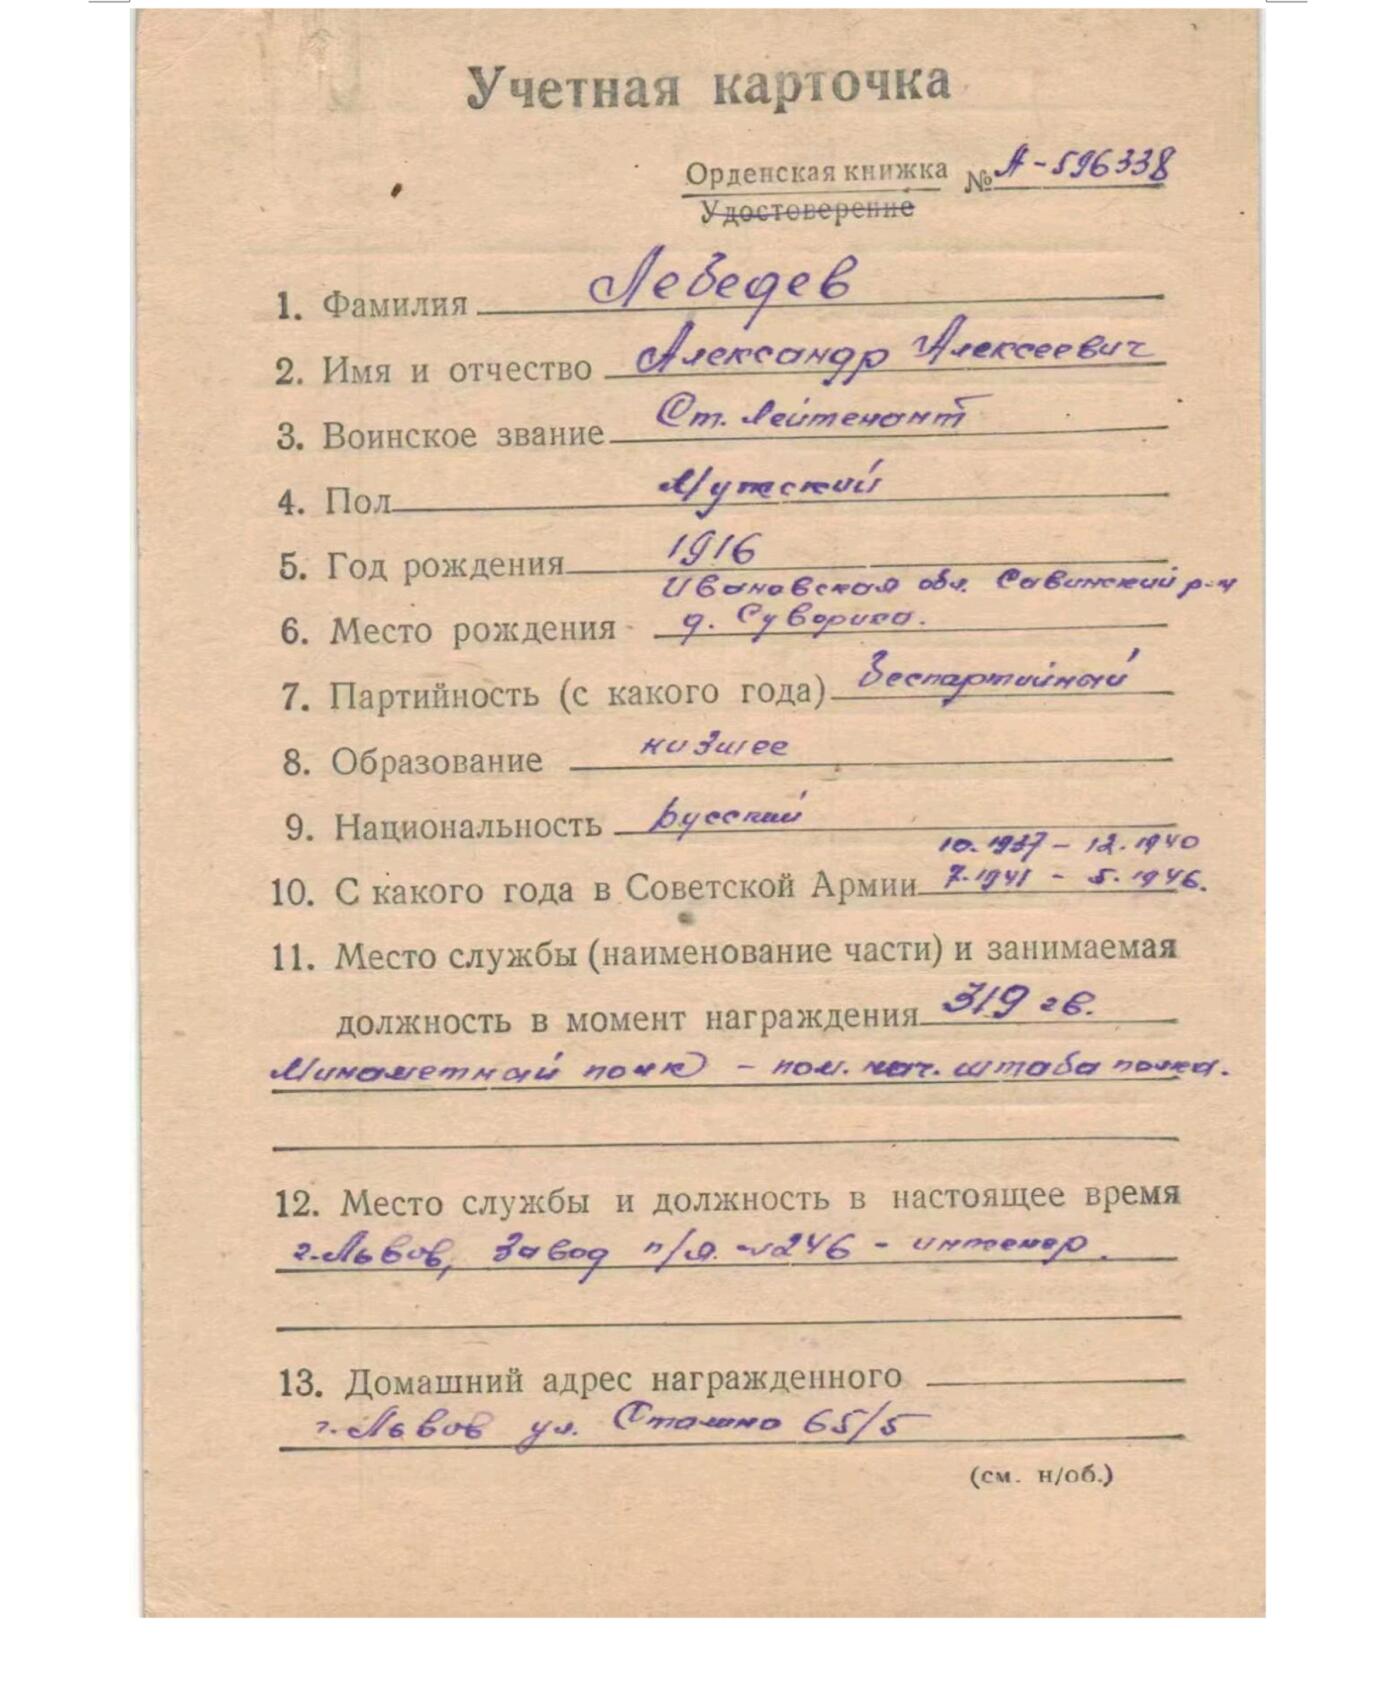 Учетная карточка
Орденская книжка № А-596338
Удостоверение
1. Фамилия Лебедев
2. Имя и отчество Александр Алексеевич
3. Воинское звание Ст. Лейтенант
4. Пол Мужской
5. Год рождения 1916
Ивановская обл. Савинский р-н
6. Место рождения д. Сувориха.
7. Партийность (с какого года) Беспартийный
8. Образование низшее
9. Национальность русский
10.1937 – 12.1940
10. С какого года в Советской Армии 7.1941 – 5.1946.
11. Место службы (наименование части) и занимаемая
должность в момент награждения 319 гв.
Минометный полк – пом. нач. штаба полка.
12. Место службы и должность в настоящее время
г. Львов, Завод п/я. №246 – инженер.
13. Домашний адрес награжденного
г. Львов ул. Сталина 65/5
(см. н/об.)